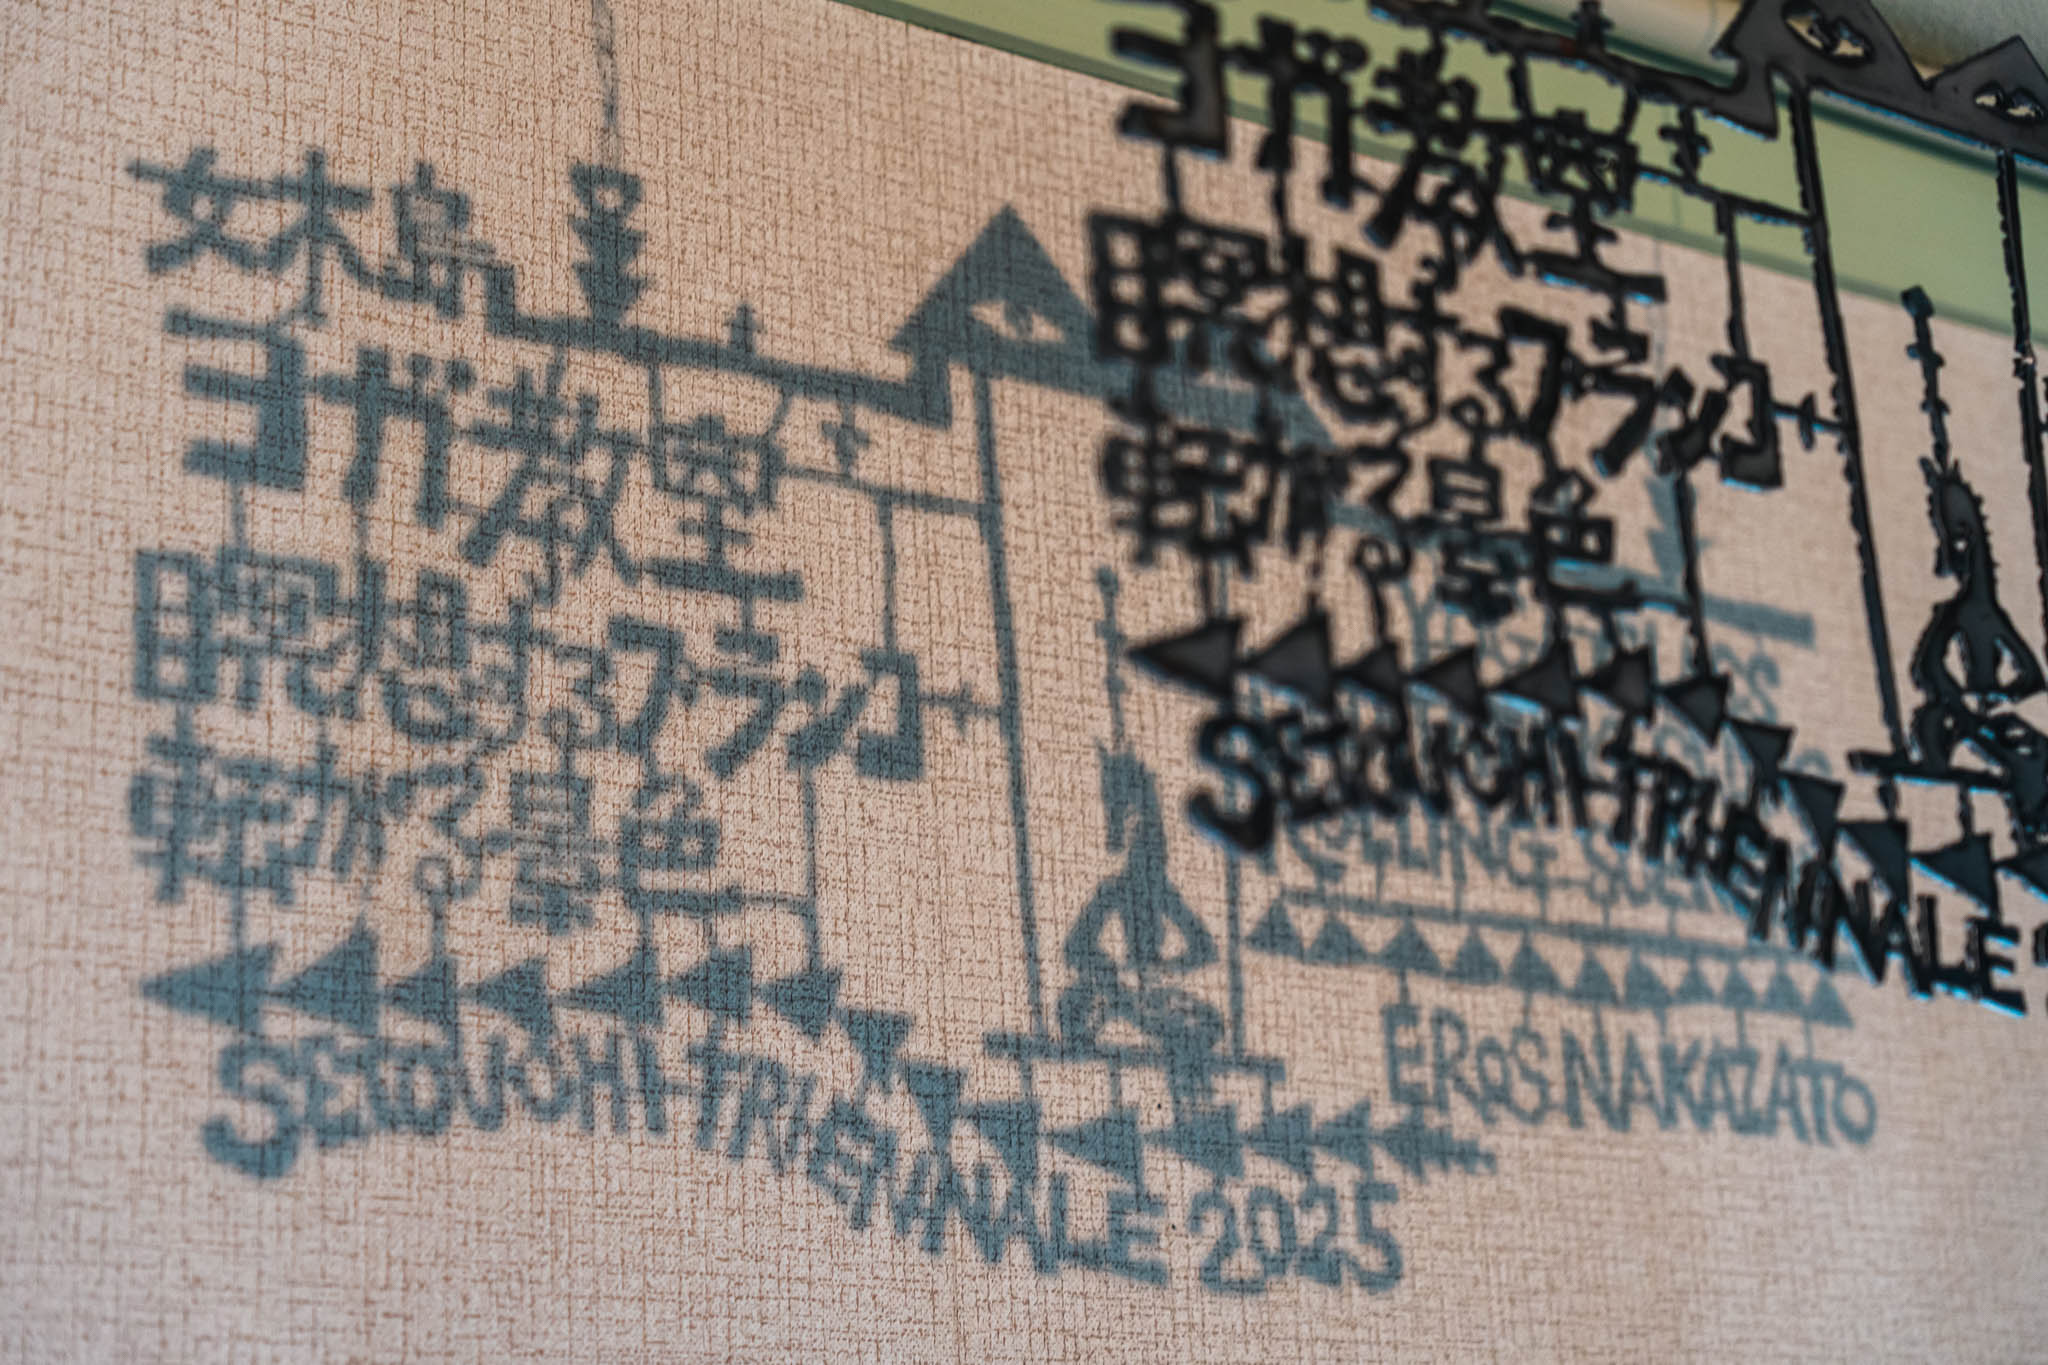 女木島
ヨガ教室
瞑想するブランコ
転がる景色
SETOUCHI-TRIENNALE 2025
ROLLING
EROS NAKAZATO
ヨガ教室
瞑想するブランコ
転がる景色
SETOUCHI-TRIENNALE